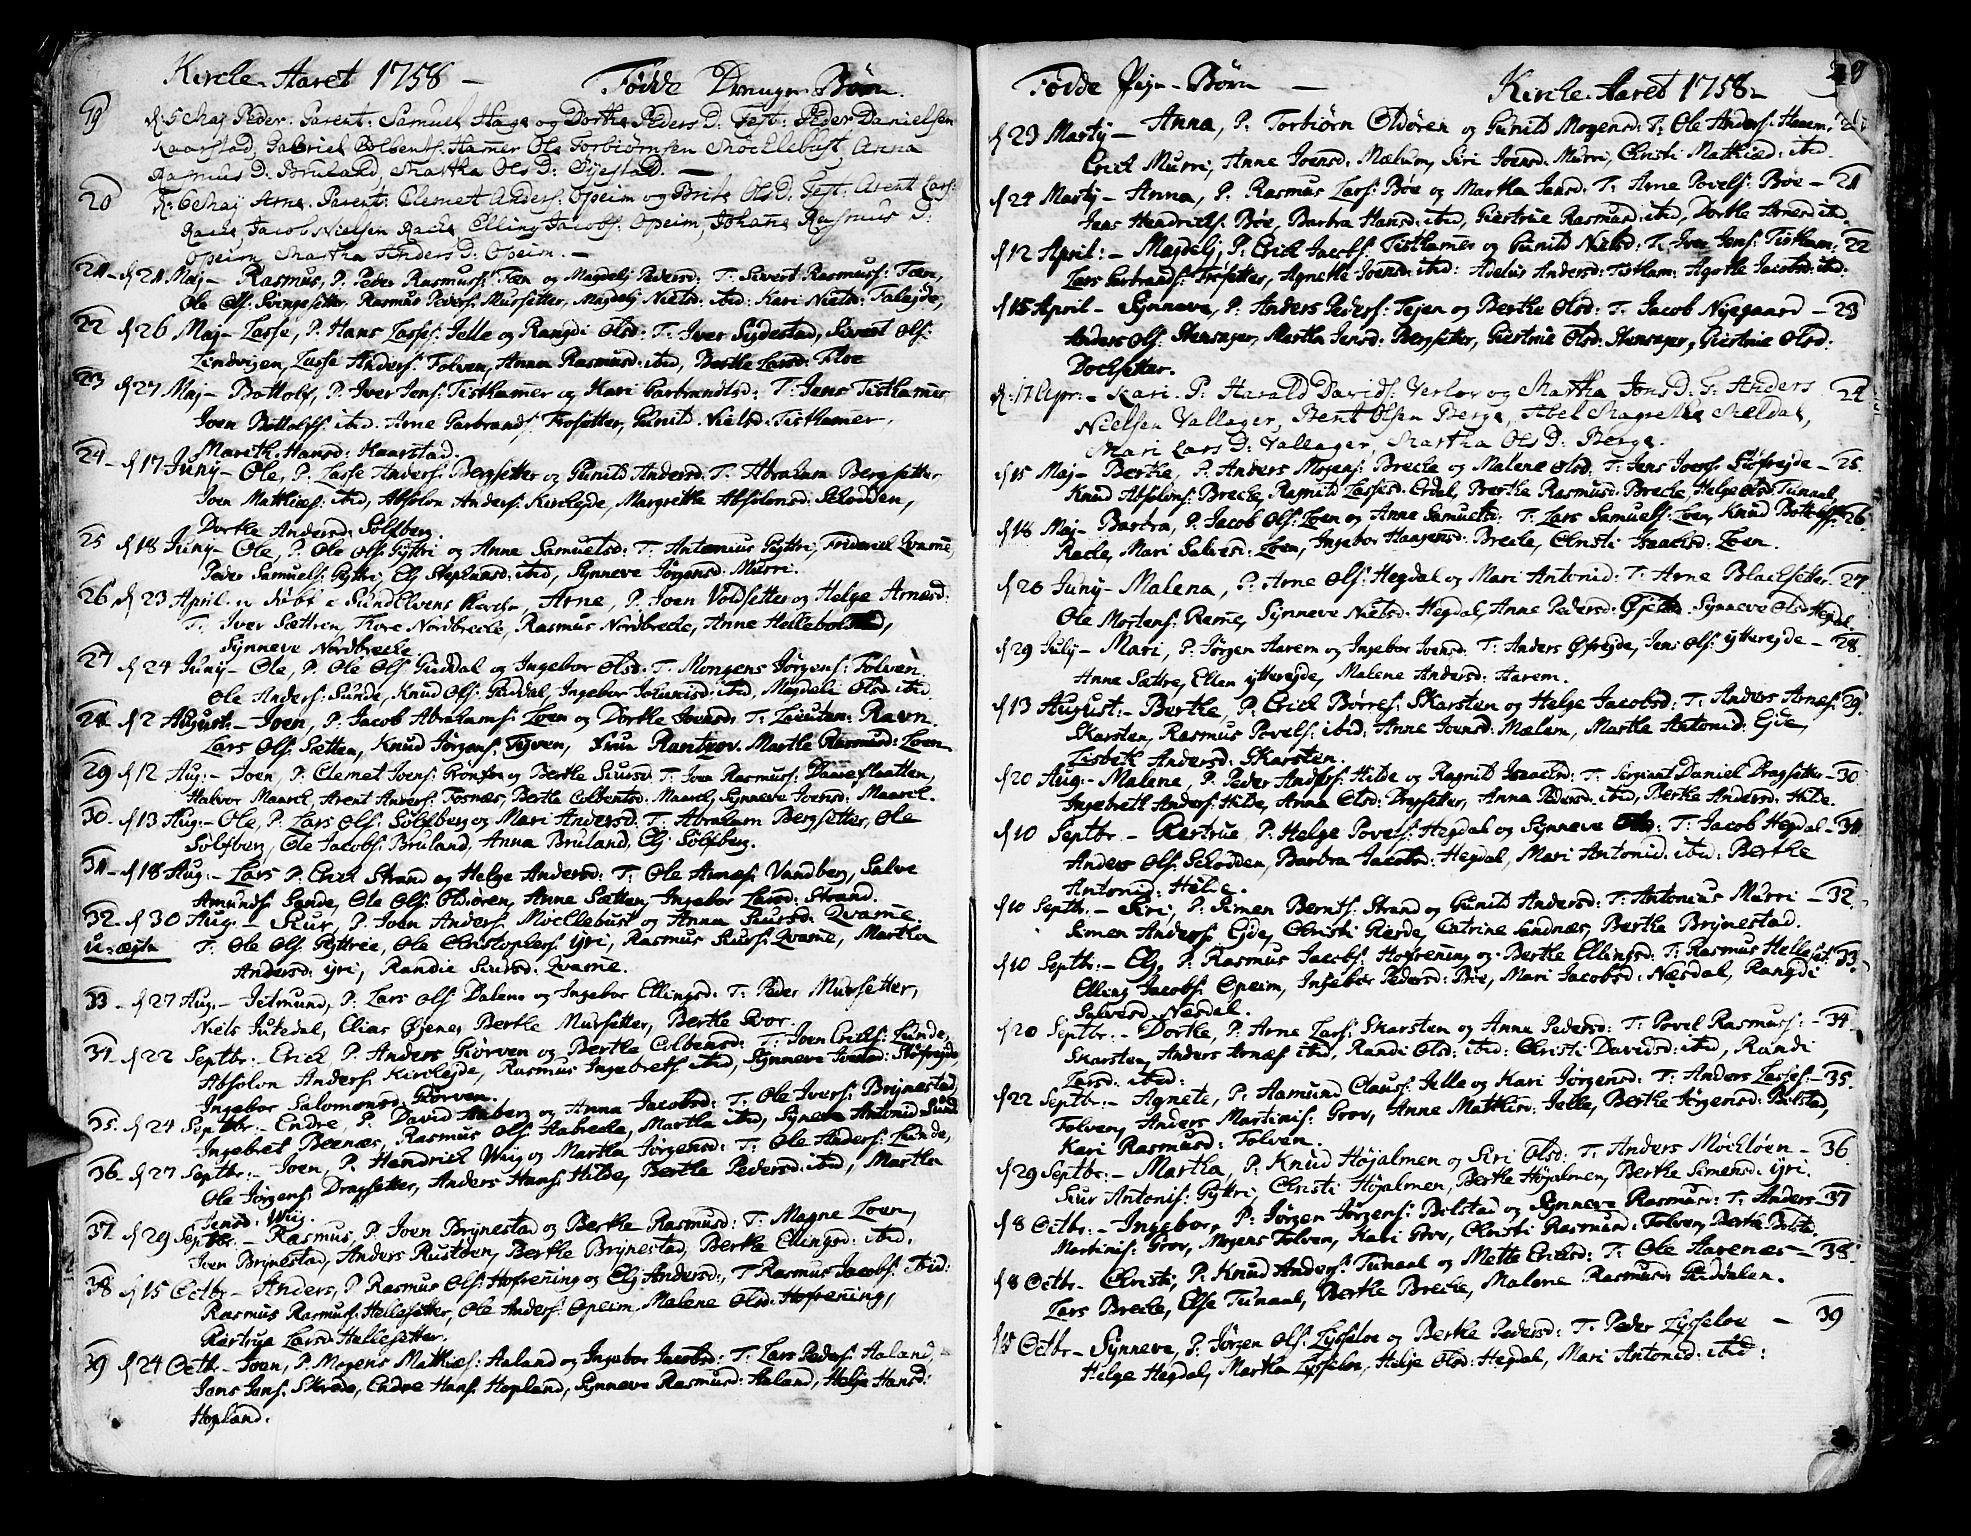 Kircke-Aaret 1758 – Fødde Drenge-Børn.
19 d. 5 Maj Peder. Parent: Samuel Hage og Dorthe Peders D: Test: Peder Danielsen
Kaarstad, Gabriel Colbents: Hamer Ole Torbiørnsen Møcklebust, Arena
Rasmus D. Bruland, Martha Ols D: Øyestad. –
20 d. 6 Maj Arne. Parent: Clemet Anders: Opeim og Brite Ols D: Test: Arent Lars:
Rache, Jacob Nielsen Rache Elling Jacobs: Opeim, Johana Rasmus D:
Opeim Martha Anders D: Opeim. –
21 – d 21 Maj – Rasmus, P: Peder Rasmuss: Toen og Magdeli Pedersd: T: Sivert Rasmuss: Toen,
Ole Ols: Svengesetter, Rasmus Peders: Mursetter, Magdeli Nielsd: ibid: Kari Nielsd: Taløyde,
22 d 26 Maj – Lasse, P: Hans Lasses: Jelle og Rangdi Olsd: T: Iver Sigdestad, Sivert Ols:
Lindvigen, Lasse Anders: Folven, Anna Rasmusd: ibid, Berthe Larsd: Floe
23 d 27 Maj – Bottolf, P: Iver Jens: Tisthamer og Kari Garbrandtsd: T: Jens Tisthamer
Joen Bottolfs: ibid. Arne Garbrands: Frosetter, Gunild Nielsd: Tisthamer,
Marith Hansd: Haarstad.
24 – d 17 Juny – Ole, P: Lasse Anders: Bergsetter og Gunild Andersd: T: Abraham Bergsetter
Joen Mathies: ibid, Absolon Anders: Kirckeyde, Margrethe Absolonsd: Skodden,
Dorthe Andersd: Solsberg.
25 d 18 Juny – Ole, P: Ole Ols: Gyttri og Anne Samuelsd: T: Antonius Gyttri, Friderich Qvame,
Peder Samuels: Gyttri, Elj Stephansd: ibid, Synneve Jørgensd: Murri.
26 d 23 April er døbt i Sundelvens Kircke, Arne, P: Joen Voldsetter og Helge Arnesd:
T: Iver Sættren, Thore Nordbrecke, Rasmus Nordbrecke, Anne Hellebolstad,
Synneve Nordbrecke
27 d 24 Juny – Ole, P: Ole Ols: Guddal og Ingebor Olsd: T: Mongens Jørgens: Folven
Ole Anders: Sunde, Knud Ols: Guddal, Ingebor Johanisd: ibid, Magdeli Olsd ibid
28 d 2 August – Joen, P: Jacob Abrahams: Loen og Dorthe Joensd: T: Lieuten: Ravn.
Lars Ols: Sætten, Knud Jørgens: Tyven, Frue Rantzov. Marthe Rasmusd: Loen
29 d 12 Aug: – Joen, P: Clemet Joens: Gronfor og Berthe Siursd: T: Iver Rasmuss: Daaeflaatten,
Halvor Maarch, Arent Anders: Tosnæs, Berthe Colbentsd: Maarch, Synneve Joensd: Maarch.
30 – d 13 Aug – Ole, P: Lars Ols: Solsberg og Mari Andersd: T: Abraham Bergsetter, Ole
Solsberg, Ole Jacobs: Bruland, Anna Bruland, Elj Solsberg.
31 – d 18 Aug: – Lars P: Erich Strand og Helge Andersd: T: Ole Arnes: Vandberg, Salve
Amunds: Sande, Ole Ols: Oldøren, Anne Sætten, Ingebor Larsd: Strand.
32 – d 30 Aug – Siur, P: Joen Anders: Møcklebust og Anna Siursd: Qvame.
u-ægte T: Ole Ols: Gyttrie, Ole Christophers: yri, Rasmus Siurs: Qvame, Martha
Andersd: yri, Randie Siursd: Qvame.
33 – d 27 Aug – Jetmund, P: Lars Ols: Dalene og Ingebor Ellingsd: T: Peder Mursetter,
Niels Jutedal, Elias Øjene, Berthe Mursetter, Berthe Gror.
34 d 22 Septbr: – Erich, P: Anders Giørven og Berthe Colbensd: T: Joen Erichs: Lunde,
Absolon Anders: Kirckeyde, Rasmus Ingebrets: ibid, Synneve Joensd: Støfrøyde
Ingebor Salomonsd: Giørven.
35 d 24 Septbr – Endre, P: David Aaberg og Anna Jacobsd: T: Ole Ivers: Brynestad,
Ingebret Beenæs, Rasmus Ols: Aabrecke, Martha ibid, Synneva Antonid: Sunde
36 – d 27 Septbr – Joen, P: Hendrich Wiig og Martha Jørgensd: T: Ole Anders: Lunde,
Ole Jørgens: Dragsetter, Anders Hans: Hilde, Berthe Pedersd: ibid, Martha
Jensd: Wiig.
37 d 29 Septbr: – Rasmus, P: Joen Brynestad og Berthe Rasmusd: T: Magne Loen,
Iven Brynestad, Anders Rustøen, Berthe Brynestad, Berthe Ellingsd: ibid.
38 d 15 Octbr – Anders, P: Rasmus Ols: Hofrening og Elj Andersd:, T: Rasmus Jacobs: ibid:
Rasmus Rasmuss: Hellesetter, Ole Anders: Opeim Malene Olsd: Hofrening,
Giertrue Larsd: Hellesetter.
39 d 24 Octb – Joen, P: Mogens Mathies: Aaland og Ingebor Jacobsd: T: Lars Peders: Aaland,
Jons Jons: Skrede, Endre Hans: Hopland, Synneve Rasmusd: Aaland, Helje Hansd:
Hopland.
Fødde Pige-Børn – Kircke-Aaret 1758 –
d 23 Marty – Anna, P: Torbiørn Oldøren og Gunild Mogensd: T: Ole Anders: Harem,
Erich Murri, Anne Joensd: Mælum, Siri Joensd: Murri, Christi Mathiæd: ibid.
d 24 Marty – Anna, P: Rasmus Lars: Bøe og Martha Jansd: T: Arne Povels: Bøe – 21
Jens Hendrichs: Bøe, Barbra Hansd: ibid, Giertrue Rasmusd: ibid, Dorthe Arnesd ibid.
d 12 April: – Magdelj, P: Erich Jacobs: Tisthamer og Gunild Nielsd: T: Iver Jens: Tistham: 22
Lars Garbrands: Frosetter, Agnethe Joensd: ibid: Adelus Andersd: Tistham: Agothe Jacobsd: ibid.
d 15 April – Synneve, P: Anders Peders: Tejen og Berthe Olsd: T: Jacob Nyegaard – 23
Anders Ols: Stensager, Martha Jensd: Bergsetter, Giertrue Olsd: Stensager, Giertrue Olsd:
Dochsetter.
d. 17 Apr: – Kari. P: Harald Davids: Verlov og Martha Jons D: T: Anders 24
Nielsen Vallager, Bent Olsen Berge, Abel Magrethe Mældal,
Mari Lars D: Vallager Martha Ols D: Berge.
d 15 Maj – Berthe, P: Anders Mogens: Brecke og Malene Olsd: T: Jens Joens: Støfrøyde – 25.
Knud Absolons: Brecke, Ragnild Lassesd: Erdal, Berthe Rasmusd: Brecke, Helge Olsd: Tunaal,
d 18 Maj – Barbra, P: Jacob Ols: Loen og Anne Samuelsd: T: Lars Samuels: Loen, Knud Bottolfs: 26
Rache, Mari Salvesd: Loen, Ingebor Haagensd: Brecke, Christi Isaacsd: Loen.
d 26 Juny – Malena, P: Arne Ols: Hegdal og Mari Antonid: T: Arne Blachsetter 27.
Ole Mortens: Rame, Synneve Nielsd: Hegdal, Anne Pedersd: Øjestad. Synneve Olsd Hegdal.
d 29 July – Mari, P: Jørgen Aarem og Ingebor Joensd: T: Anders Øfrøyde, Jens Ols: ytterøyde – 28.
Anne Sættre, Ellen ytterøyde, Malene Andersd: Aarem.
d 13 August: – Berthe, P: Erich Børres: Skarsten og Helge Jacobsd: T: Anders Arnes: 29.
Skarsten, Rasmus Povels: ibid: Anne Joensd: Mælem, Marthe Antonid: Eyde,
Lisbeth Andersd: Skarsten.
d 20 Aug: – Malene, P: Peder Anders: Hilde og Ragnild Isaacsd: T: Sergiant Daniel Dragsetter – 30.
Ingebrett Anders: Hilde, Anna Olsd: Dragsetter, Anna Pedersd: ibid, Berthe Andersd: Hilde.
d 10 Septbr. – Giertrue, P: Helge Povels: Hegdal og Synneve Olsd: T: Jacob Hegdal – 31
Anders Ols: Skodden, Barbra Jacobsd: Hegdal, Mari Antonid: ibid: Berthe
Antonid: Helde.
d 10 Septb: – Siri, P: Simen Bernts: Strand og Gunild Andersd: T: Antonius Murri – 32.
Simen Anders: Eyde, Christi Gierde, Catrine Sandnæs, Berthe Brynestad.
d 10 Septbr: – Elj, P: Rasmus Jacobs: Hofrening og Berthe Ellingsd: T: Rasmus Helleset: 33.
Elling Jacobs: Opeim, Ingebor Pedersd: Bøe, Mari Jacobsd: Næsdal, Rangdi
Salvesd Næsdal.
d 20 Septbr: – Dorthe, P: Arne Lars: Skarsten og Anne Pedersd: T: Povel Rasmuss: – 34.
Skarsten, Anders Arnæs: ibid, Randi Olsd: ibid: Christi Davidsd: ibid, Randi
Larsd: ibid:
d 22 Septbr: – Agnete, P: Aamund Clauss: Jelle og Kari Jørgensd: T: Anders Lasses: – 35.
Folven, Anders Martinis: Grov, Anne Mathisd: Jelle, Berthe Jørgensd: Bolstad,
Kari Rasmusd: Folven.
d 29 Septbr: – Martha, P: Knud Høyalmen og Siri Olsd: T: Anders Møckløen – 36.
Siur Antonis: Gyttri, Christi Høyalmen, Berthe Høyalmen, Berthe Simensd: yri.
d 8 Octbr: – Ingebor, P: Jørgen Jørgens: Bolstad og Synneve Rasmusd: T: Anders – 37
Martinis: Grov, Mogens Folven, Kari Grov, Christi Rasmusd: Folven, Berthe Bolsta.
d 8 Octbr – Christi, P: Knud Anders: Tunaal og Mette Erichsd: T: Ole Aarenæs – 38.
Lars Brecke, Else Tunaal, Berthe Brecke, Malene Rasmusd: Guddalen.
d 15 Octbr – Synneve, P: Jørgen Ols: Lysseloe og Berthe Pedersd: T: Peder Lysseloe – 39
Helge Hegdal, Martha Lysseloe, Helje Olsd: Hegdal, Mari Antonid: ibid: